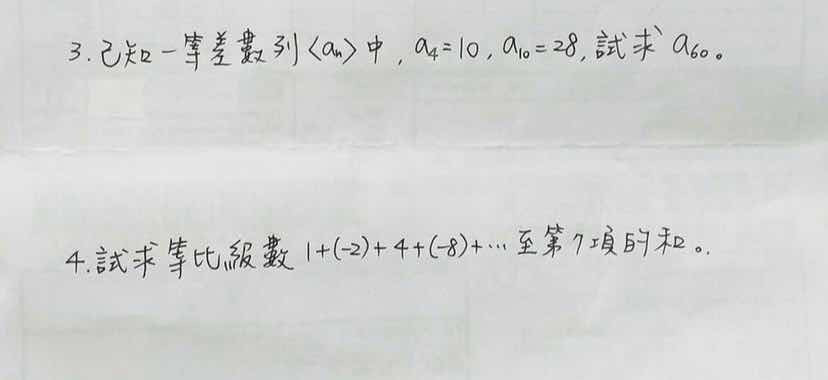 3. 已知一等差數列〈aₙ〉中, a₄=10, a₁₀=28, 試求 a₆₀。
4. 試求等比級數 1+(-2)+4+(-8)+⋯至第7項的和。